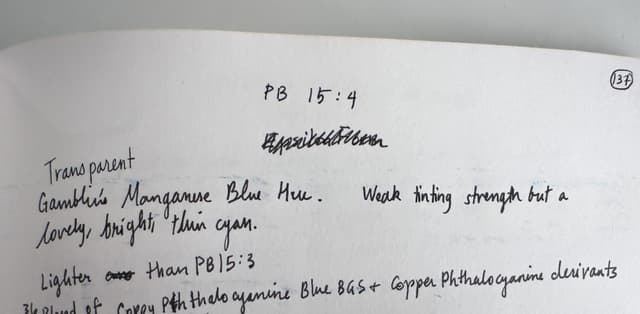 137
PB 15:4
Transparent
Gamblin's Manganese Blue Hue. Weak tinting strength but a
lovely, bright, thin cyan.
Lighter than PB15:3
of Copper Phthalocyanine Blue BGS + Copper Phthalocyanine derivants